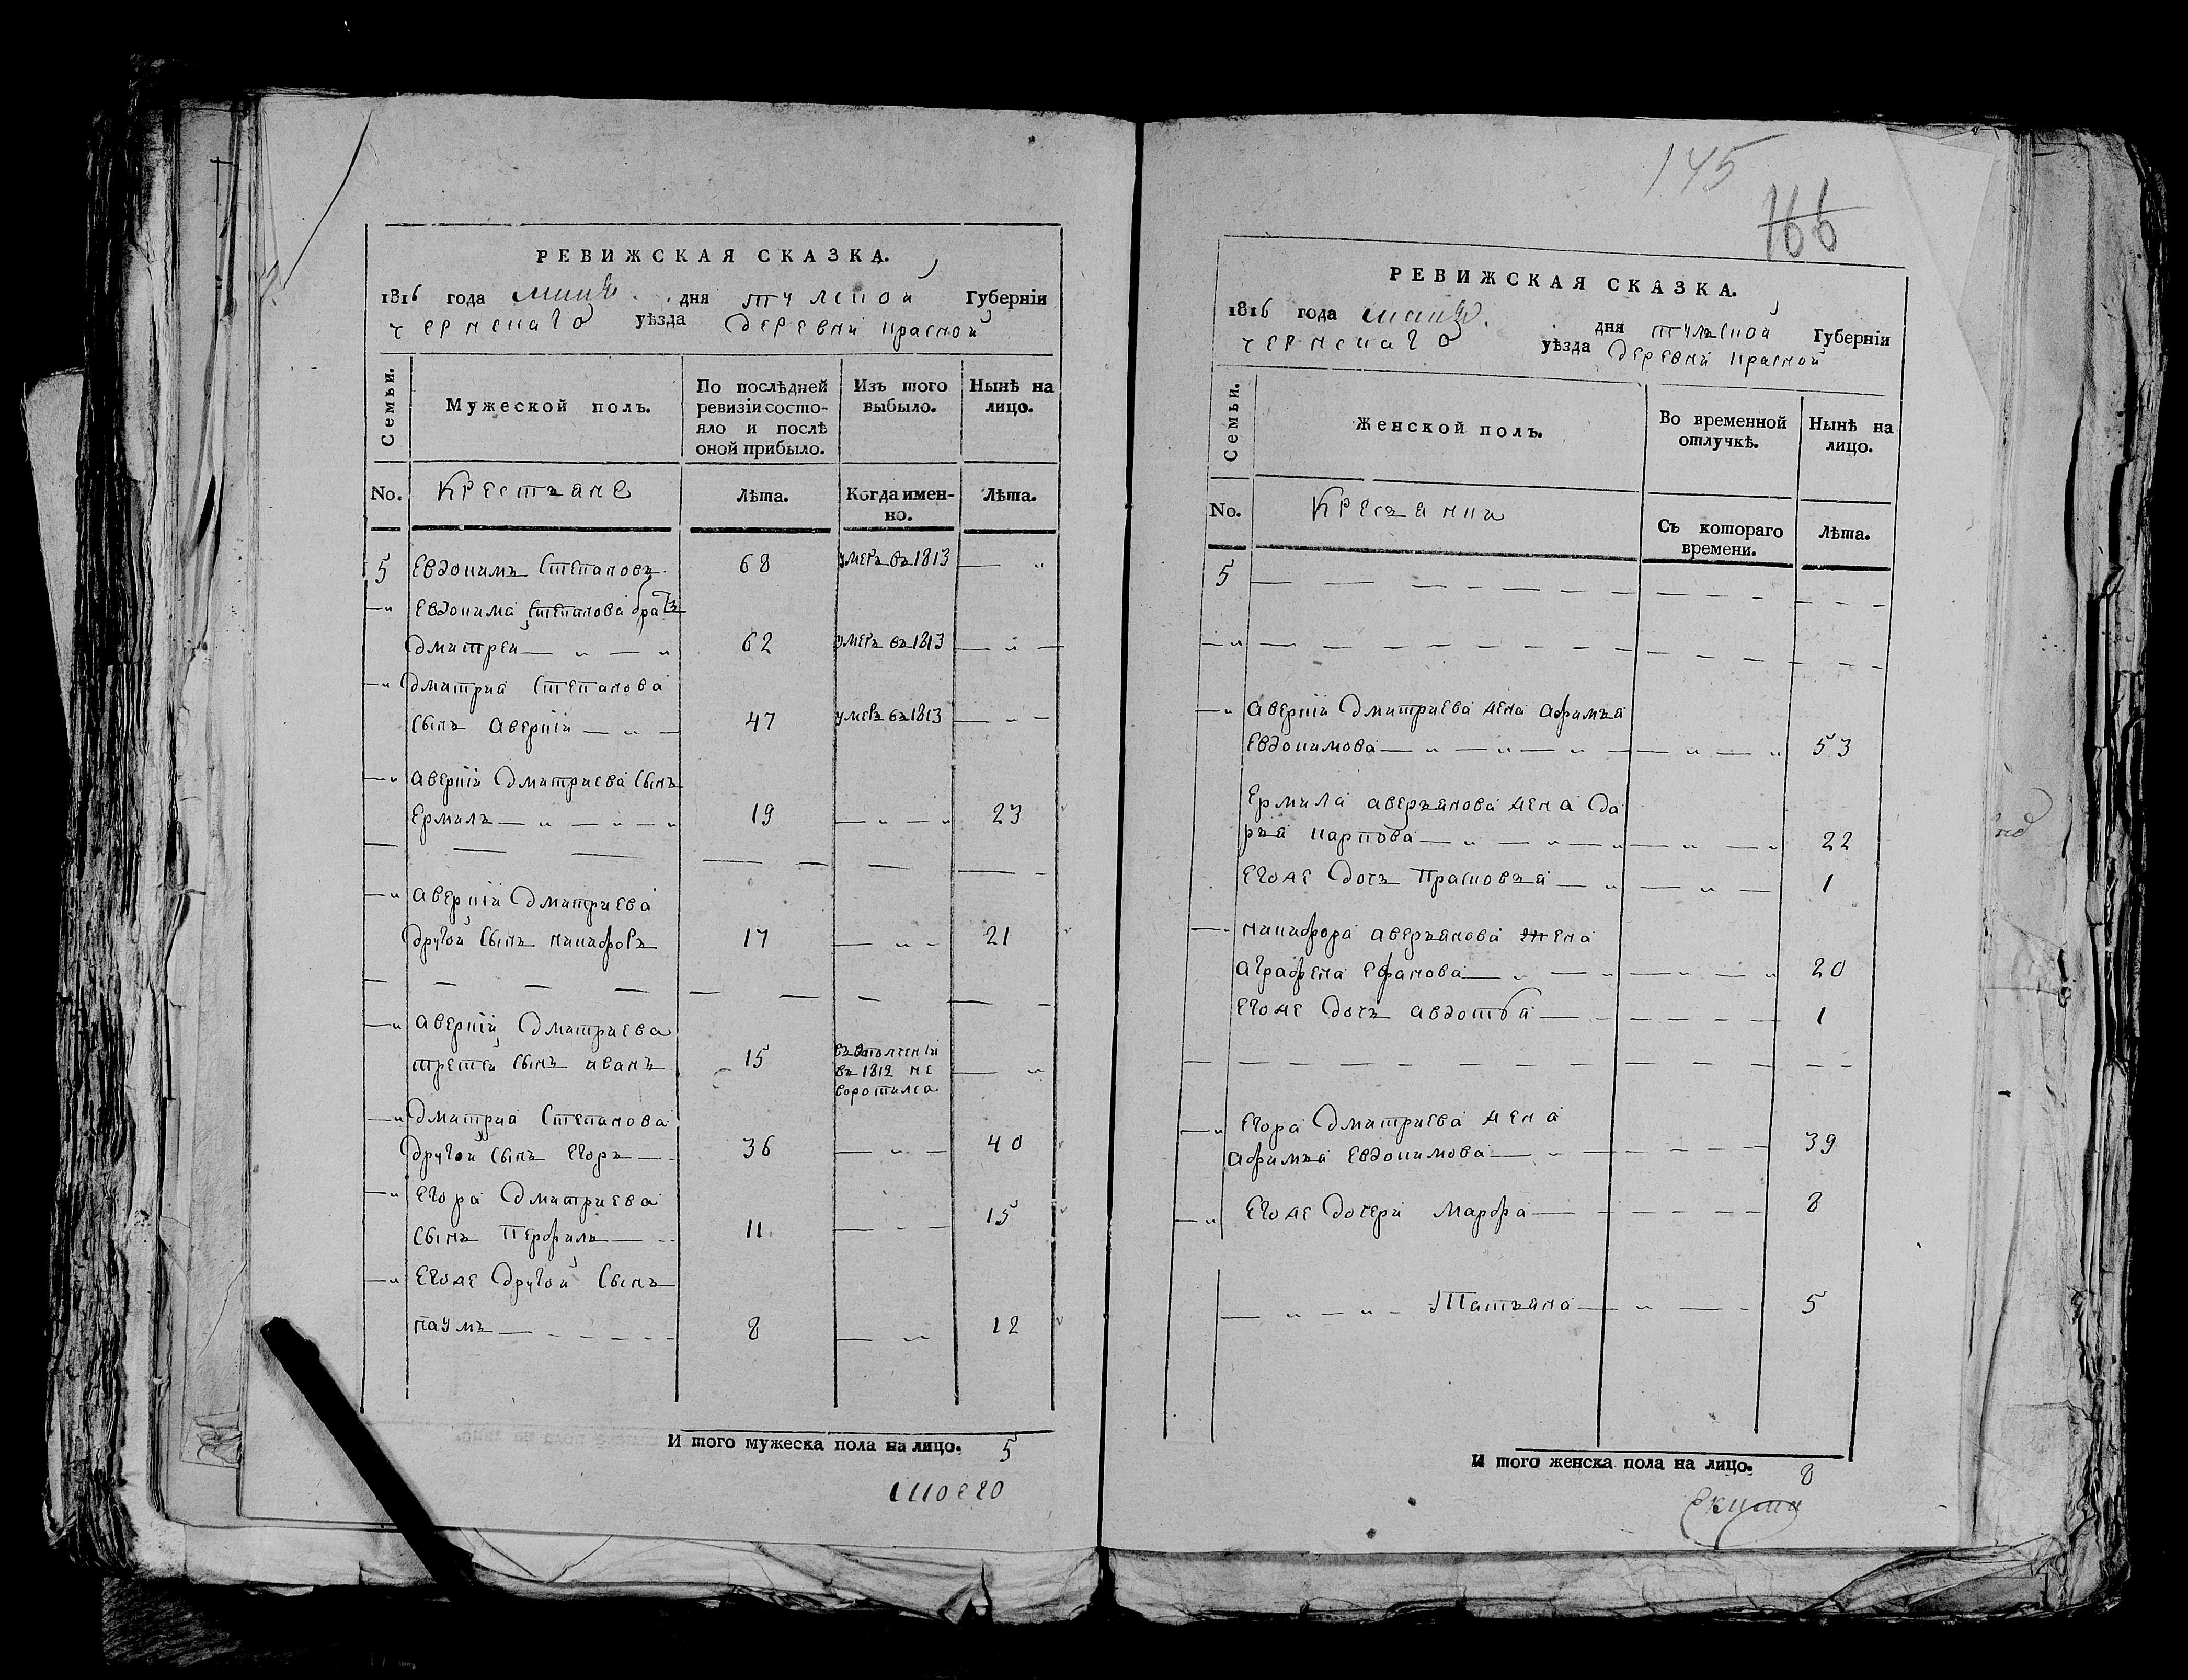 РЕВИЖСКАЯ СКАЗКА.
1816 года дня тулской Губерніи
чернскаго уѣзда деревни красной
Семьи.
Мужеской полъ.
По послѣдней
ревизіи состо-
яло и послѣ
оной прибыло.
Изъ того
выбыло.
Нынѣ на
лицо.
No. Крестъяне Лѣта. Когда имен-
но. Лѣта.
5 Евдокимъ Степановъ 68 умеръ въ 1813 — „
— „ Евдокима Степанова братъ
Дмитреи — „ — „ 62 умеръ въ 1813 — „ —
— „ Дмитриа Степанова
сынъ аверніи — „ — 47 умеръ въ 1813 — - —
— „ аверніи Дмитриева сынъ
Ермилъ — „ — „ — „ 19 — „ — „ 23
— „ аверніи Дмитриева
другой сынъ никифоръ 17 — „ - 21
— „ аверніи Дмитриева
третеи сынъ иванъ 15 въ ополченіи
въ 1812 не
воротился — „
— „ Дмитриа Степанова
другой сынъ Егоръ — - 36 — „ — 40
— „ Егора Дмитриева
сынъ Перфилъ — - - 11 — - — 15
— „ Егоже другой сынъ
наумъ — - - - - - 8 — „ 12
И того мужеска пола на лицо. 5
145
166
РЕВИЖСКАЯ СКАЗКА.
1816 года дня тулъской Губерніи
чернскаго уѣзда деревни красной
Семьи.
Женской полъ.
Во временной
отлучкѣ.
Нынѣ на
лицо.
No. Кресъянки Съ котораго
времени. Лѣта.
5 — — — - - - - - -
— „ — - - - - - - - -
— „ аверніи Дмитриева жена афимъя
Евдокимова — „ — „ — „ — — „ — „ 53
Ермила аверъянова жена Да
ръя карпова — „ — „ — „ — „ — „ 22
Егоже дочъ Прасковъя — „ — „ — 1
— „ никифора аверъянова жена
аграфена Ефимова — „ — „ — „ — „ 20
Егоже дочъ авдотья — - - — - — 1
— „ Егора Дмитриева жена
афимъя Евдокимова — „ - - - - — 39
— „ Егоже дочери марфа — - - - - - 8
— „ — „ - Татъяна — „ — - 5
И того женска пола на лицо. 8